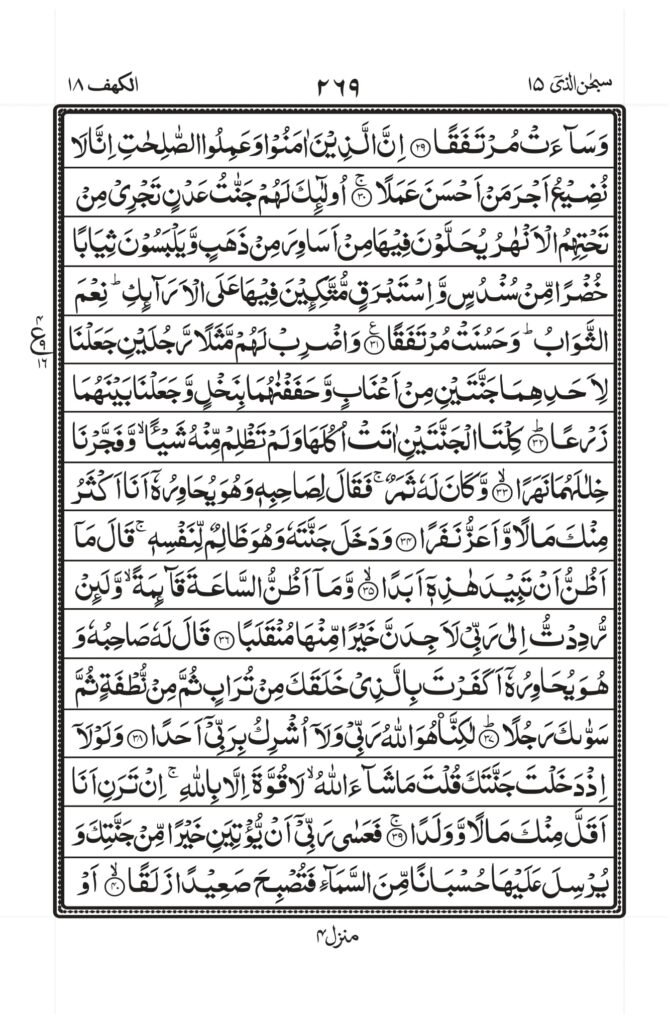 سبحٰن الذیٓ ١٥
٢٦٩
الکهف ١٨
وَسَآءَتْ مُرْتَفَقًا ﴿٢٩﴾ اِنَّ الَّذِیْنَ اٰمَنُوْا وَعَمِلُوا الصّٰلِحٰتِ اِنَّا لَا
نُضِیْعُ اَجْرَ مَنْ اَحْسَنَ عَمَلًا ﴿٣٠﴾ۚ اُولٰٓئِكَ لَهُمْ جَنّٰتُ عَدْنٍ تَجْرِیْ مِنْ
تَحْتِهِمُ الْاَنْهٰرُ یُحَلَّوْنَ فِیْهَا مِنْ اَسَاوِرَ مِنْ ذَهَبٍ وَّیَلْبَسُوْنَ ثِیَابًا
خُضْرًا مِّنْ سُنْدُسٍ وَّاِسْتَبْرَقٍ مُّتَّكِـِٕیْنَ فِیْهَا عَلَی الْاَرَآئِكِ ؕ نِعْمَ
الثَّوَابُ ؕ وَحَسُنَتْ مُرْتَفَقًا ﴿٣١﴾ۧ وَاضْرِبْ لَهُمْ مَّثَلًا رَّجُلَیْنِ جَعَلْنَا
لِاَحَدِهِمَا جَنَّتَیْنِ مِنْ اَعْنَابٍ وَّحَفَفْنٰهُمَا بِنَخْلٍ وَّجَعَلْنَا بَیْنَهُمَا
زَرْعًا ﴿٣٢﴾ؕ كِلْتَا الْجَنَّتَیْنِ اٰتَتْ اُكُلَهَا وَلَمْ تَظْلِمْ مِّنْهُ شَیْـًٔا ۙ وَّفَجَّرْنَا
خِلٰلَهُمَا نَهَرًا ﴿٣٣﴾ۙ وَّكَانَ لَهٗ ثَمَرٌ ۚ فَقَالَ لِصَاحِبِهٖ وَهُوَ یُحَاوِرُهٗۤ اَنَا اَكْثَرُ
مِنْكَ مَالًا وَّاَعَزُّ نَفَرًا ﴿٣٤﴾ وَدَخَلَ جَنَّتَهٗ وَهُوَ ظَالِمٌ لِّنَفْسِهٖ ۚ قَالَ مَاۤ
اَظُنُّ اَنْ تَبِیْدَ هٰذِهٖۤ اَبَدًا ﴿٣٥﴾ۙ وَّمَاۤ اَظُنُّ السَّاعَةَ قَآئِمَةً ۙ وَّلَئِنْ
رُّدِدْتُّ اِلٰی رَبِّیْ لَاَجِدَنَّ خَیْرًا مِّنْهَا مُنْقَلَبًا ﴿٣٦﴾ قَالَ لَهٗ صَاحِبُهٗ وَ
هُوَ یُحَاوِرُهٗۤ اَكَفَرْتَ بِالَّذِیْ خَلَقَكَ مِنْ تُرَابٍ ثُمَّ مِنْ نُّطْفَةٍ ثُمَّ
سَوّٰىكَ رَجُلًا ﴿٣٧﴾ؕ لٰكِنَّا۠ هُوَ اللّٰهُ رَبِّیْ وَلَاۤ اُشْرِكُ بِرَبِّیْۤ اَحَدًا ﴿٣٨﴾ وَلَوْلَاۤ
اِذْ دَخَلْتَ جَنَّتَكَ قُلْتَ مَا شَآءَ اللّٰهُ ۙ لَا قُوَّةَ اِلَّا بِاللّٰهِ ۚ اِنْ تَرَنِ اَنَا
اَقَلَّ مِنْكَ مَالًا وَّوَلَدًا ﴿٣٩﴾ۚ فَعَسٰی رَبِّیْۤ اَنْ یُّؤْتِیَنِ خَیْرًا مِّنْ جَنَّتِكَ وَ
یُرْسِلَ عَلَیْهَا حُسْبَانًا مِّنَ السَّمَآءِ فَتُصْبِحَ صَعِیْدًا زَلَقًا ﴿٤٠﴾ۙ اَوْ
٤
ع
٩
١٦
منزل ٤